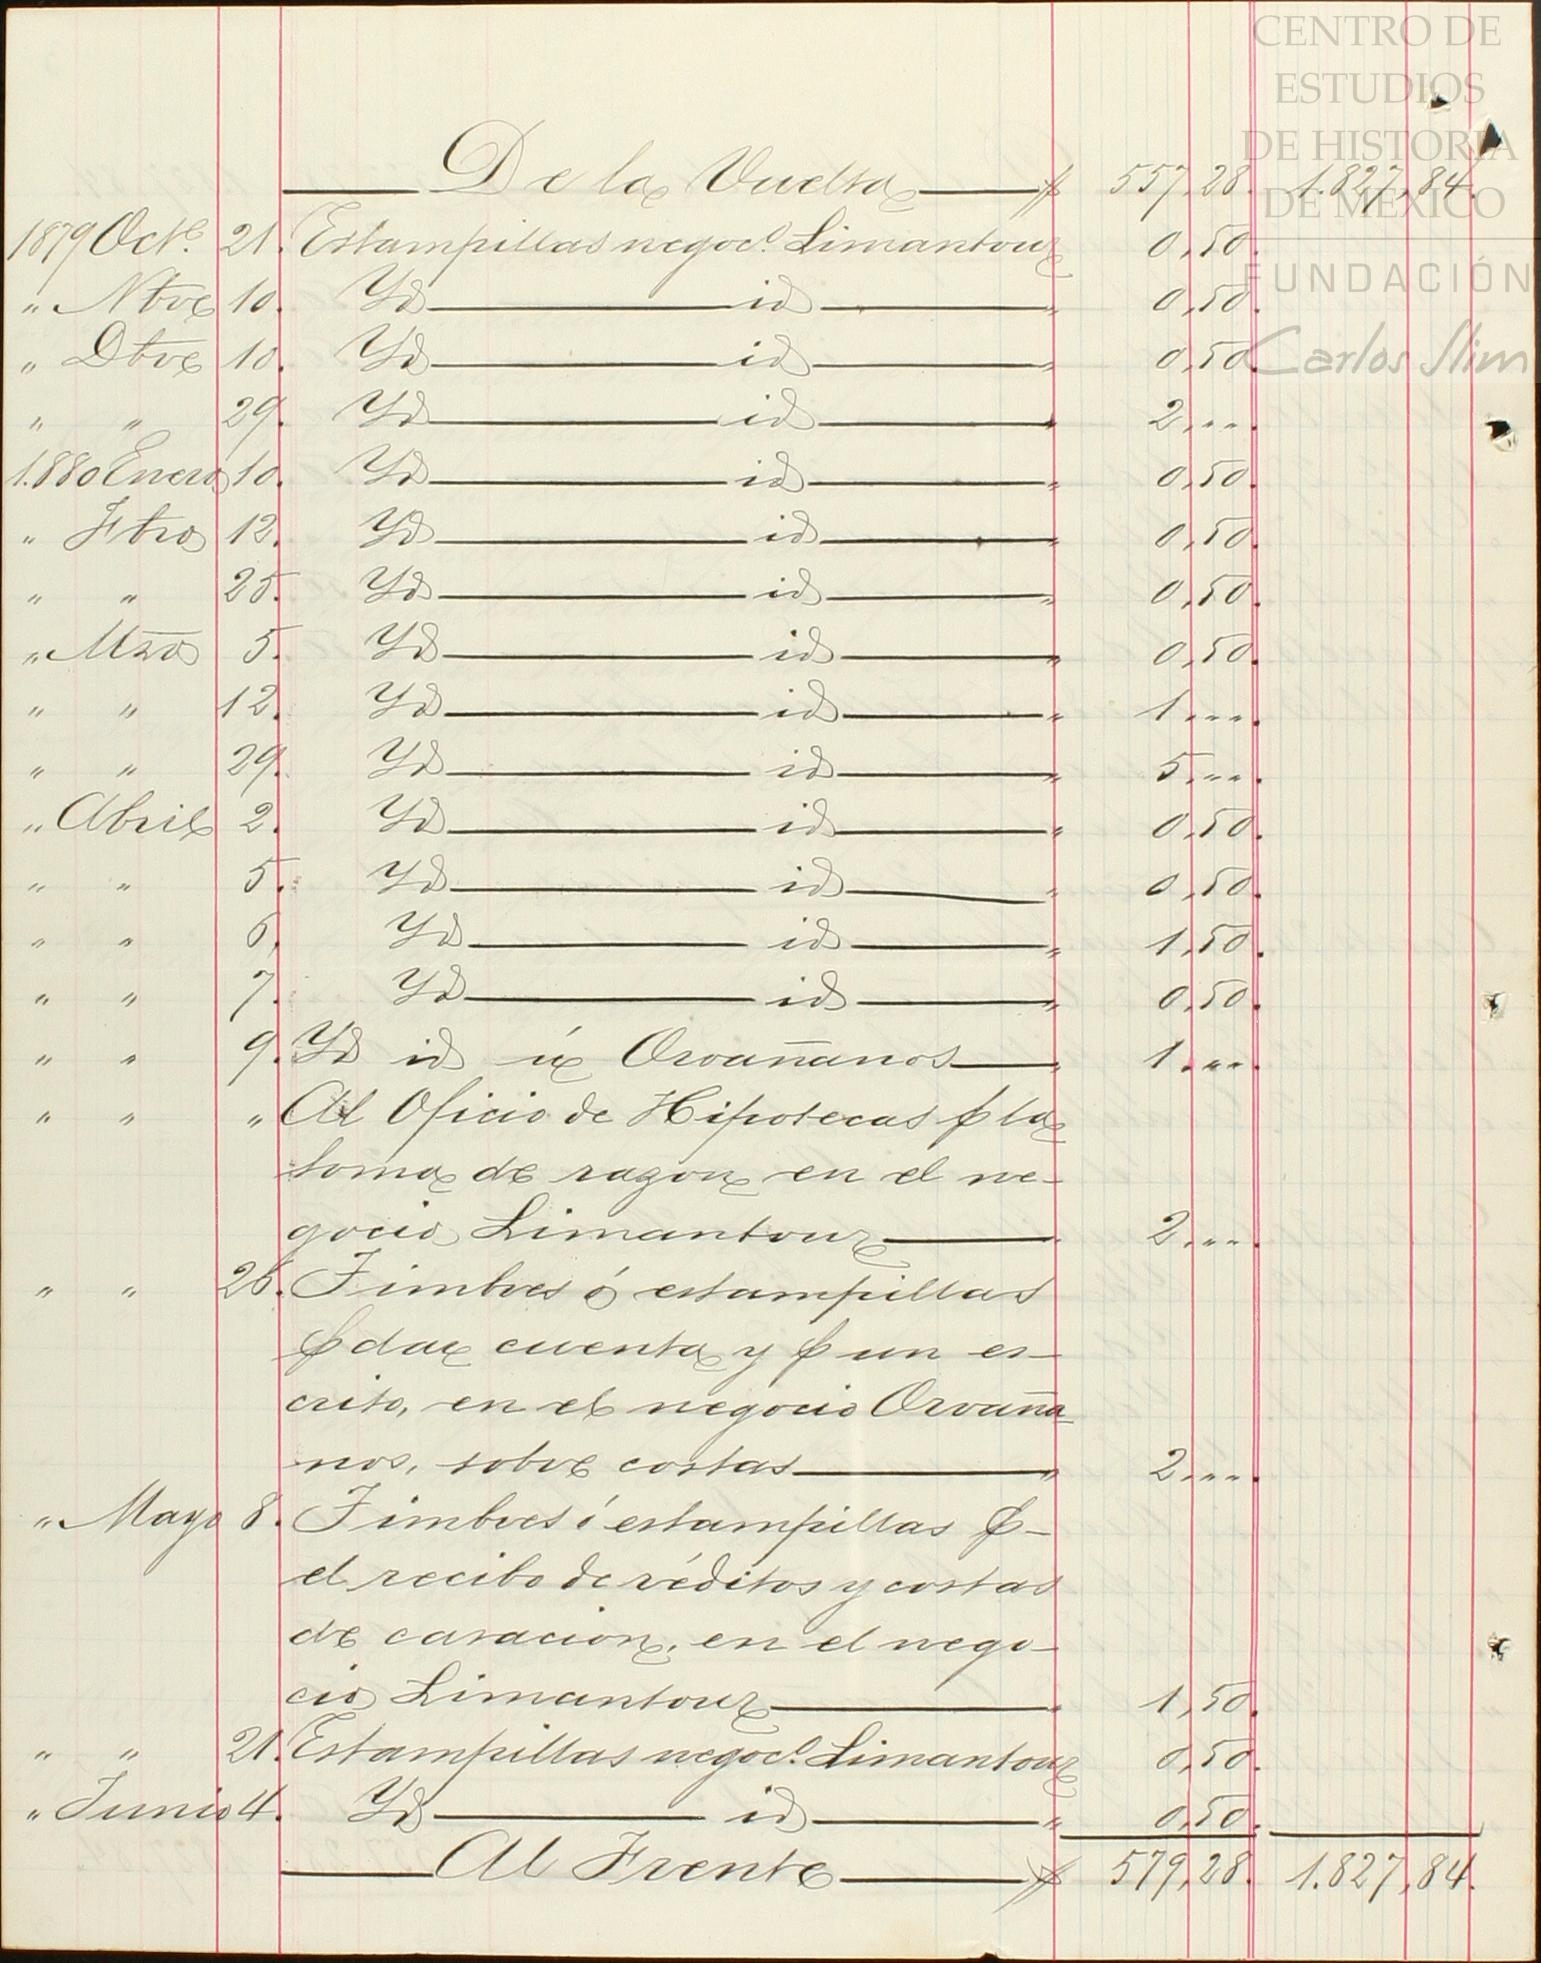 CENTRO DE
ESTUDIOS
DE HISTORIA
DE MÉXICO
FUNDACIÓN
Carlos Slim
De la Vuelta $ 557,28. 1.827,84.
1879 Octe. 21. Estampillas negoco. Limantour 0,50.
" Nbre 10. Yd id " 0,50.
" Dbre 10. Yd id " 0,50.
" " 29. Yd id " 2,"".
1.880 Enero 10. Yd id " 0,50.
" Fbro 12. Yd id " 0,50.
" " 25. Yd id " 0,50.
" Mzo 5. Yd id " 0,50.
" " 12. Yd id " 1,"".
" " 29. Yd id " 5,"".
" Abril 2. Yd id " 0,50.
" " 5. Yd id " 0,50.
" " 6, Yd id " 1,50.
" " 7. Yd id " 0,50.
" " 9. Yd id Orvañanos " 1,"".
" " " Al Oficio de Hipotecas p la
toma de razon en el ne-
gocio Limantour " 2,"".
" " 26. Timbres ó estampillas
p dar cuenta y p un es-
crito, en el negocio Orvaña
nos, sobre costas " 2,"".
" Mayo 8. Timbres ó estampillas p-
el recibo de réditos y costas
de casacion, en el nego-
cio Limantour " 1,50.
" " 21. Estampillas negoco. Limantour 0,50.
" Junio 4. Yd id " 0,50.
Al Frente $ 579,28. 1.827,84.